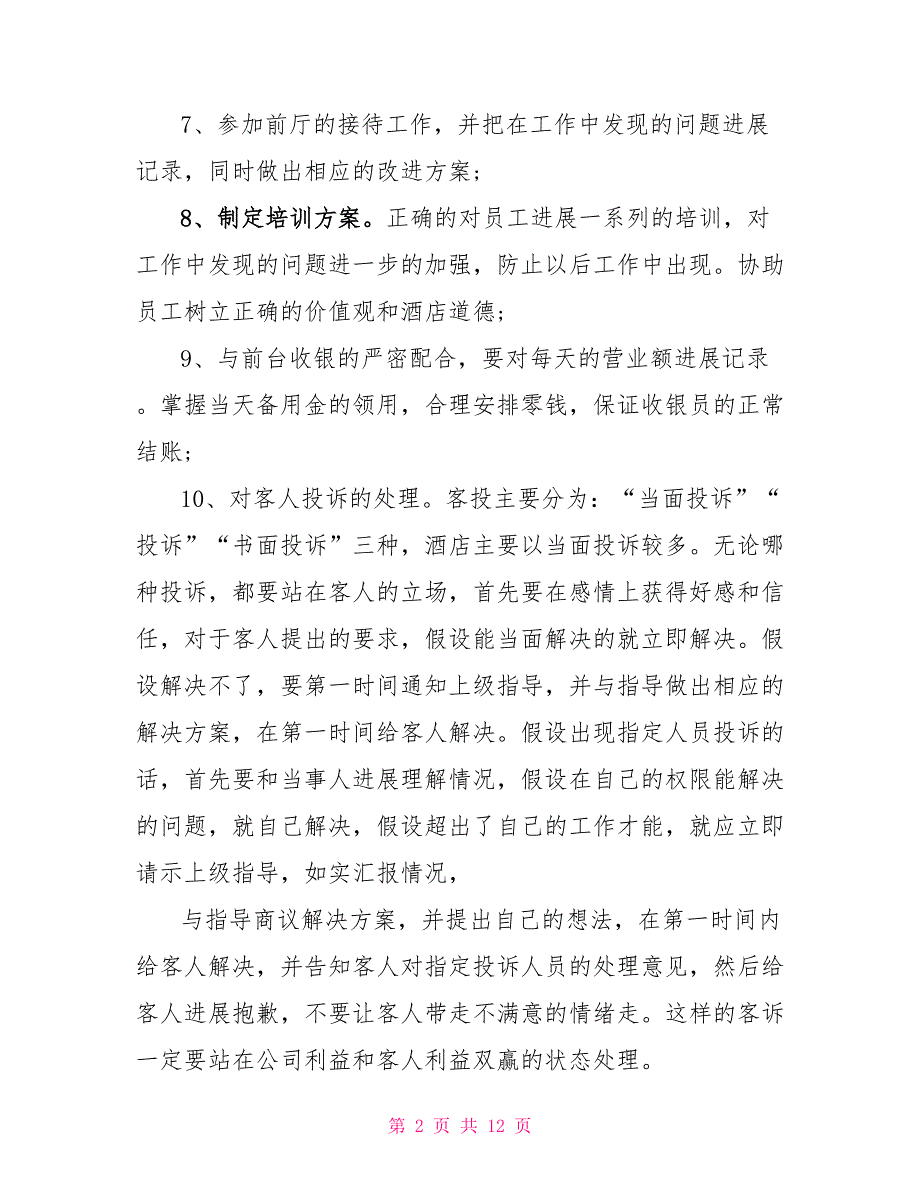 7、参加前厅的接待工作，并把在工作中发现的问题进展
记录，同时做出相应的改进方案;
8、制定培训方案。正确的对员工进展一系列的培训，对
工作中发现的问题进一步的加强，防止以后工作中出现。协助
员工树立正确的价值观和酒店道德;
9、与前台收银的严密配合，要对每天的营业额进展记录
。掌握当天备用金的领用，合理安排零钱，保证收银员的正常
结账;
10、对客人投诉的处理。客投主要分为：“当面投诉”“
投诉”“书面投诉”三种，酒店主要以当面投诉较多。无论哪
种投诉，都要站在客人的立场，首先要在感情上获得好感和信
任，对于客人提出的要求，假设能当面解决的就立即解决。假
设解决不了，要第一时间通知上级指导，并与指导做出相应的
解决方案，在第一时间给客人解决。假设出现指定人员投诉的
话，首先要和当事人进展理解情况，假设在自己的权限能解决
的问题，就自己解决，假设超出了自己的工作才能，就应立即
请示上级指导，如实汇报情况，
与指导商议解决方案，并提出自己的想法，在第一时间内
给客人解决，并告知客人对指定投诉人员的处理意见，然后给
客人进展抱歉，不要让客人带走不满意的情绪走。这样的客诉
一定要站在公司利益和客人利益双赢的状态处理。
第 2 页 共 12 页